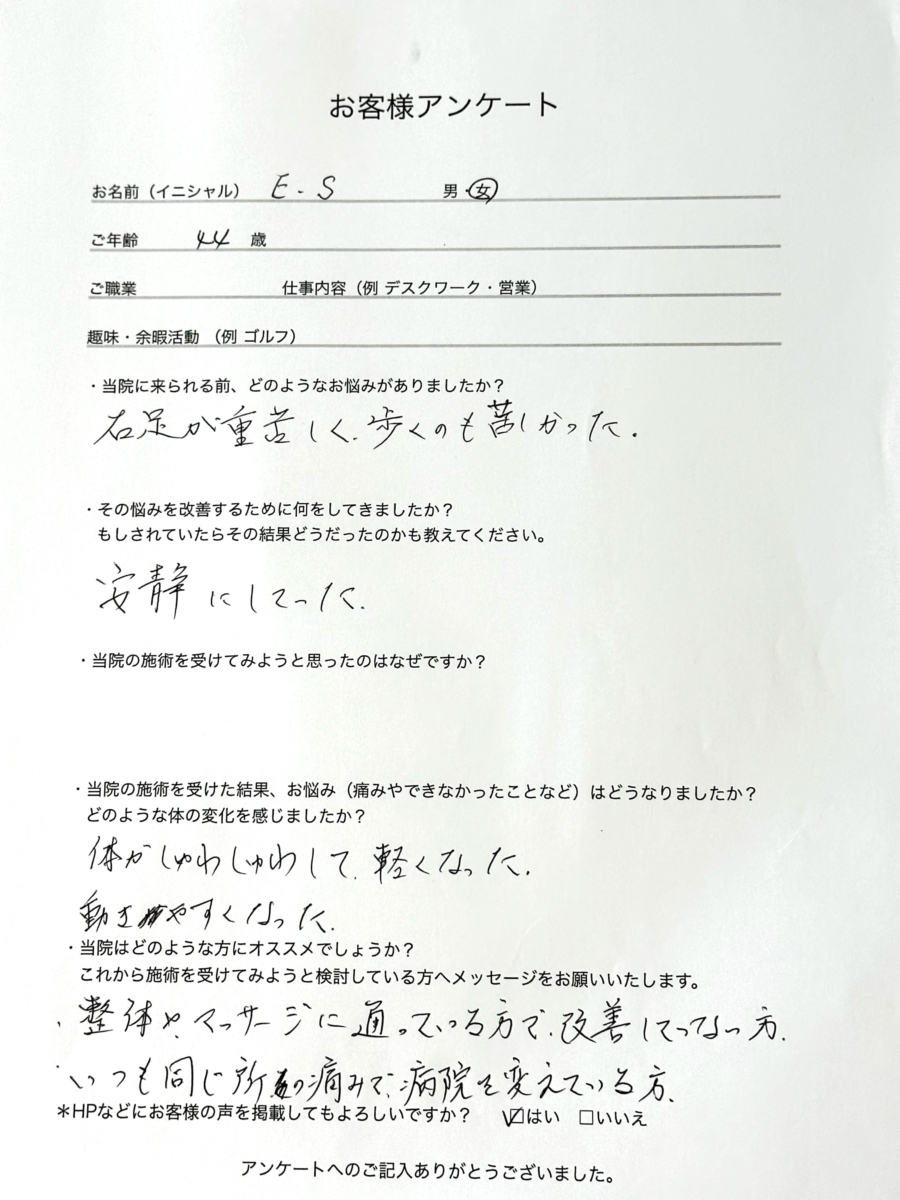 お客様アンケート
お名前（イニシャル） E.S 男・女
ご年齢 44 歳
ご職業 仕事内容（例 デスクワーク・営業）
趣味・余暇活動 （例 ゴルフ）
・当院に来られる前、どのようなお悩みがありましたか？
右足が重苦しく、歩くのも苦しかった.
・その悩みを改善するために何をしてきましたか？
もしされていたらその結果どうだったのかも教えてください。
安静にしてった.
・当院の施術を受けてみようと思ったのはなぜですか？
・当院の施術を受けた結果、お悩み（痛みやできなかったことなど）はどうなりましたか？
どのような体の変化を感じましたか？
体がしゅわしゅわして、軽くなった.
動きやすくなった.
・当院はどのような方にオススメでしょうか？
これから施術を受けてみようと検討している方へメッセージをお願いいたします。
・整体や、マッサージに通っている方で、改善してってない方.
・いつも同じ所の痛みで、病院を変えている方.
＊HPなどにお客様の声を掲載してもよろしいですか？ ☑はい □いいえ
アンケートへのご記入ありがとうございました。